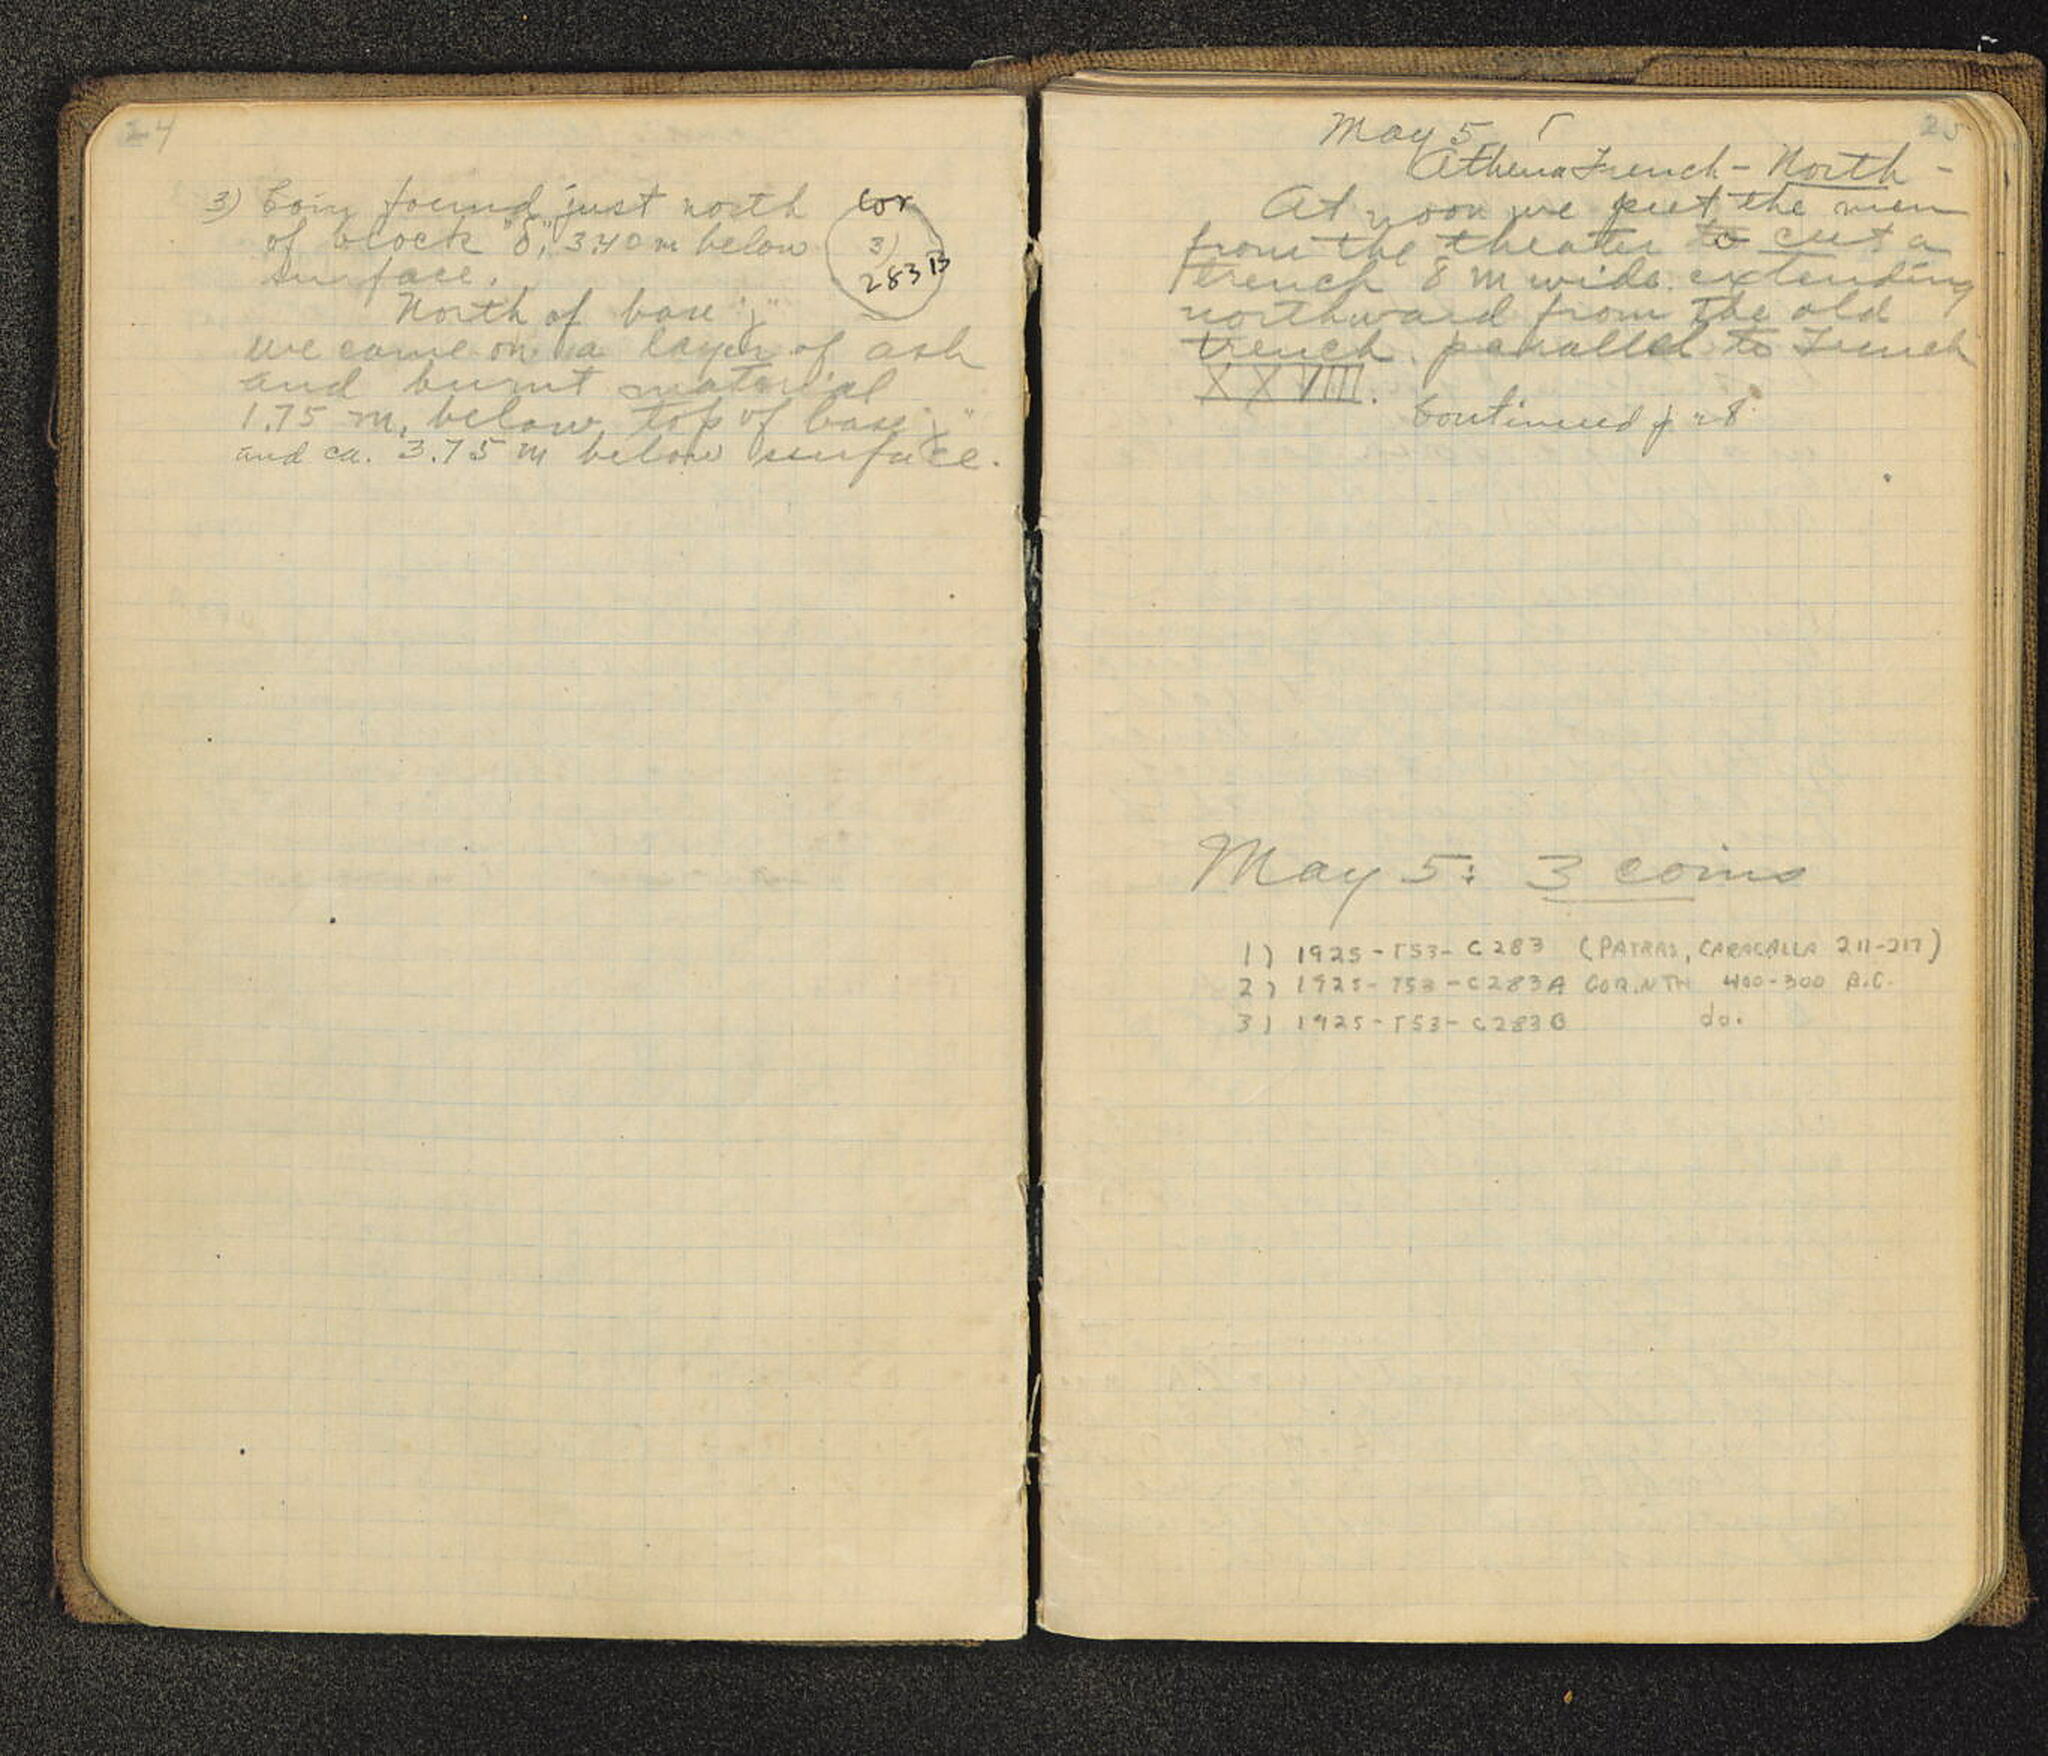 24
3) Coin found just north
of block "δ", 3.40 m below
surface.
Cor
3)
283 B
North of base
we came on a layer of ash
and burnt material
1.75 m. below top of base
and ca. 3.75 m below surface.
25
May 5
Athena Trench - North -
At noon we put the men
from the theater to cut a
trench 8 m wide extending
northward from the old
trench parallel to Trench
XXVIIII.
Continued p 28
May 5: 3 coins
1) 1925-T53-C283 (PATRAS, CARACALLA 211-217)
2) 1925-T53-C283A CORINTH 400-300 B.C.
3) 1925-T53-C283B do.